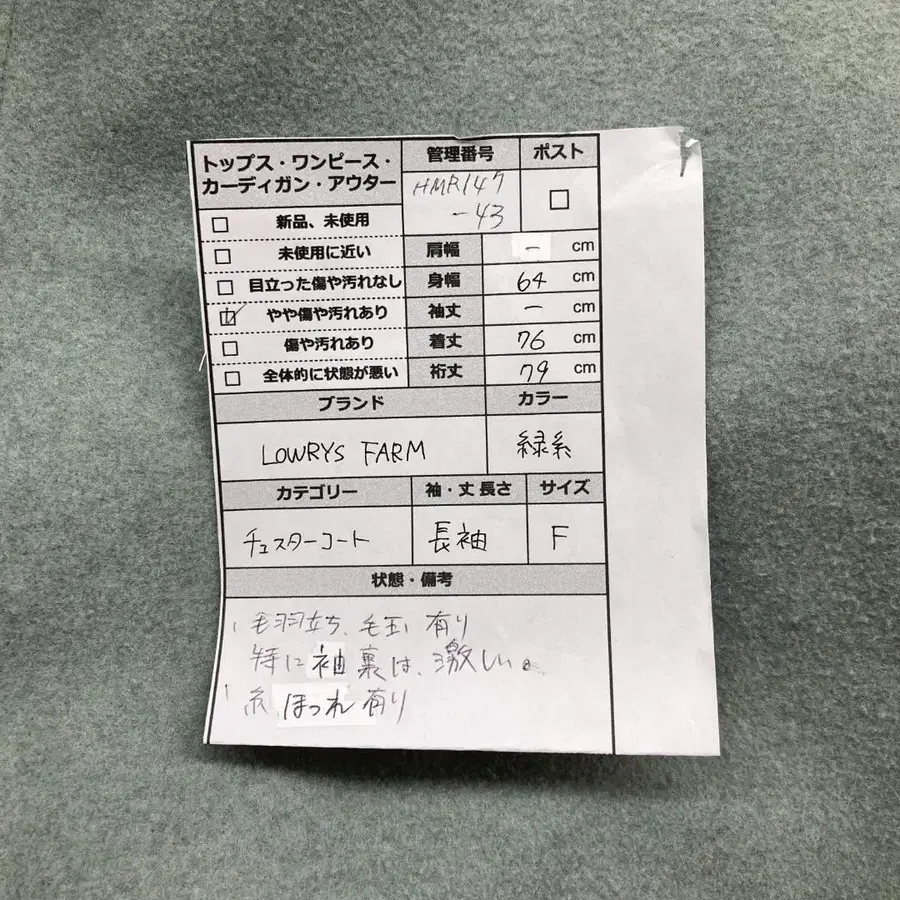 トップス・ワンピース・
カーディガン・アウター
管理番号
ポスト
HMR147
-43
新品、未使用
未使用に近い
目立った傷や汚れなし
やや傷や汚れあり
傷や汚れあり
全体的に状態が悪い
肩幅 ー cm
身幅 64 cm
袖丈 ー cm
着丈 76 cm
裄丈 79 cm
ブランド
カラー
LOWRYS FARM
緑系
カテゴリー
袖・丈 長さ
サイズ
チェスターコート
長袖
F
状態・備考
毛羽立ち、毛玉 有り
特に袖裏は、激しい。
糸ほつれ有り